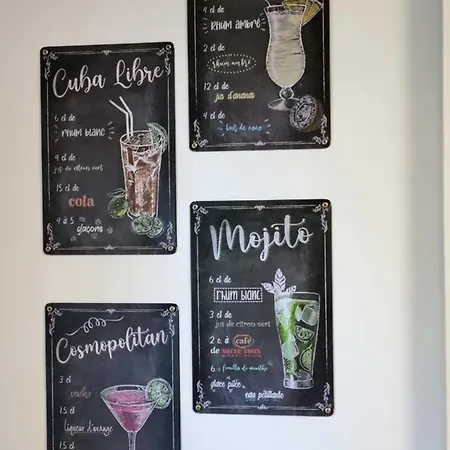 4 cl de
rhum ambré
2 cl de
rhum ambré
12 cl de
jus d'ananas
4 cl de
lait de coco
Cuba Libre
6 cl de
rhum blanc
4 cl de
jus de citron vert
15 cl de
cola
4 à 5
glaçons
Mojito
6 cl de
rhum blanc
3 cl de
jus de citron vert
2 c. à café
de
6 feuilles de menthe
glace pilée
eau pétillante
Cosmopolitan
3 cl
vodka
1.5 cl
liqueur d'orange
1.5 cl